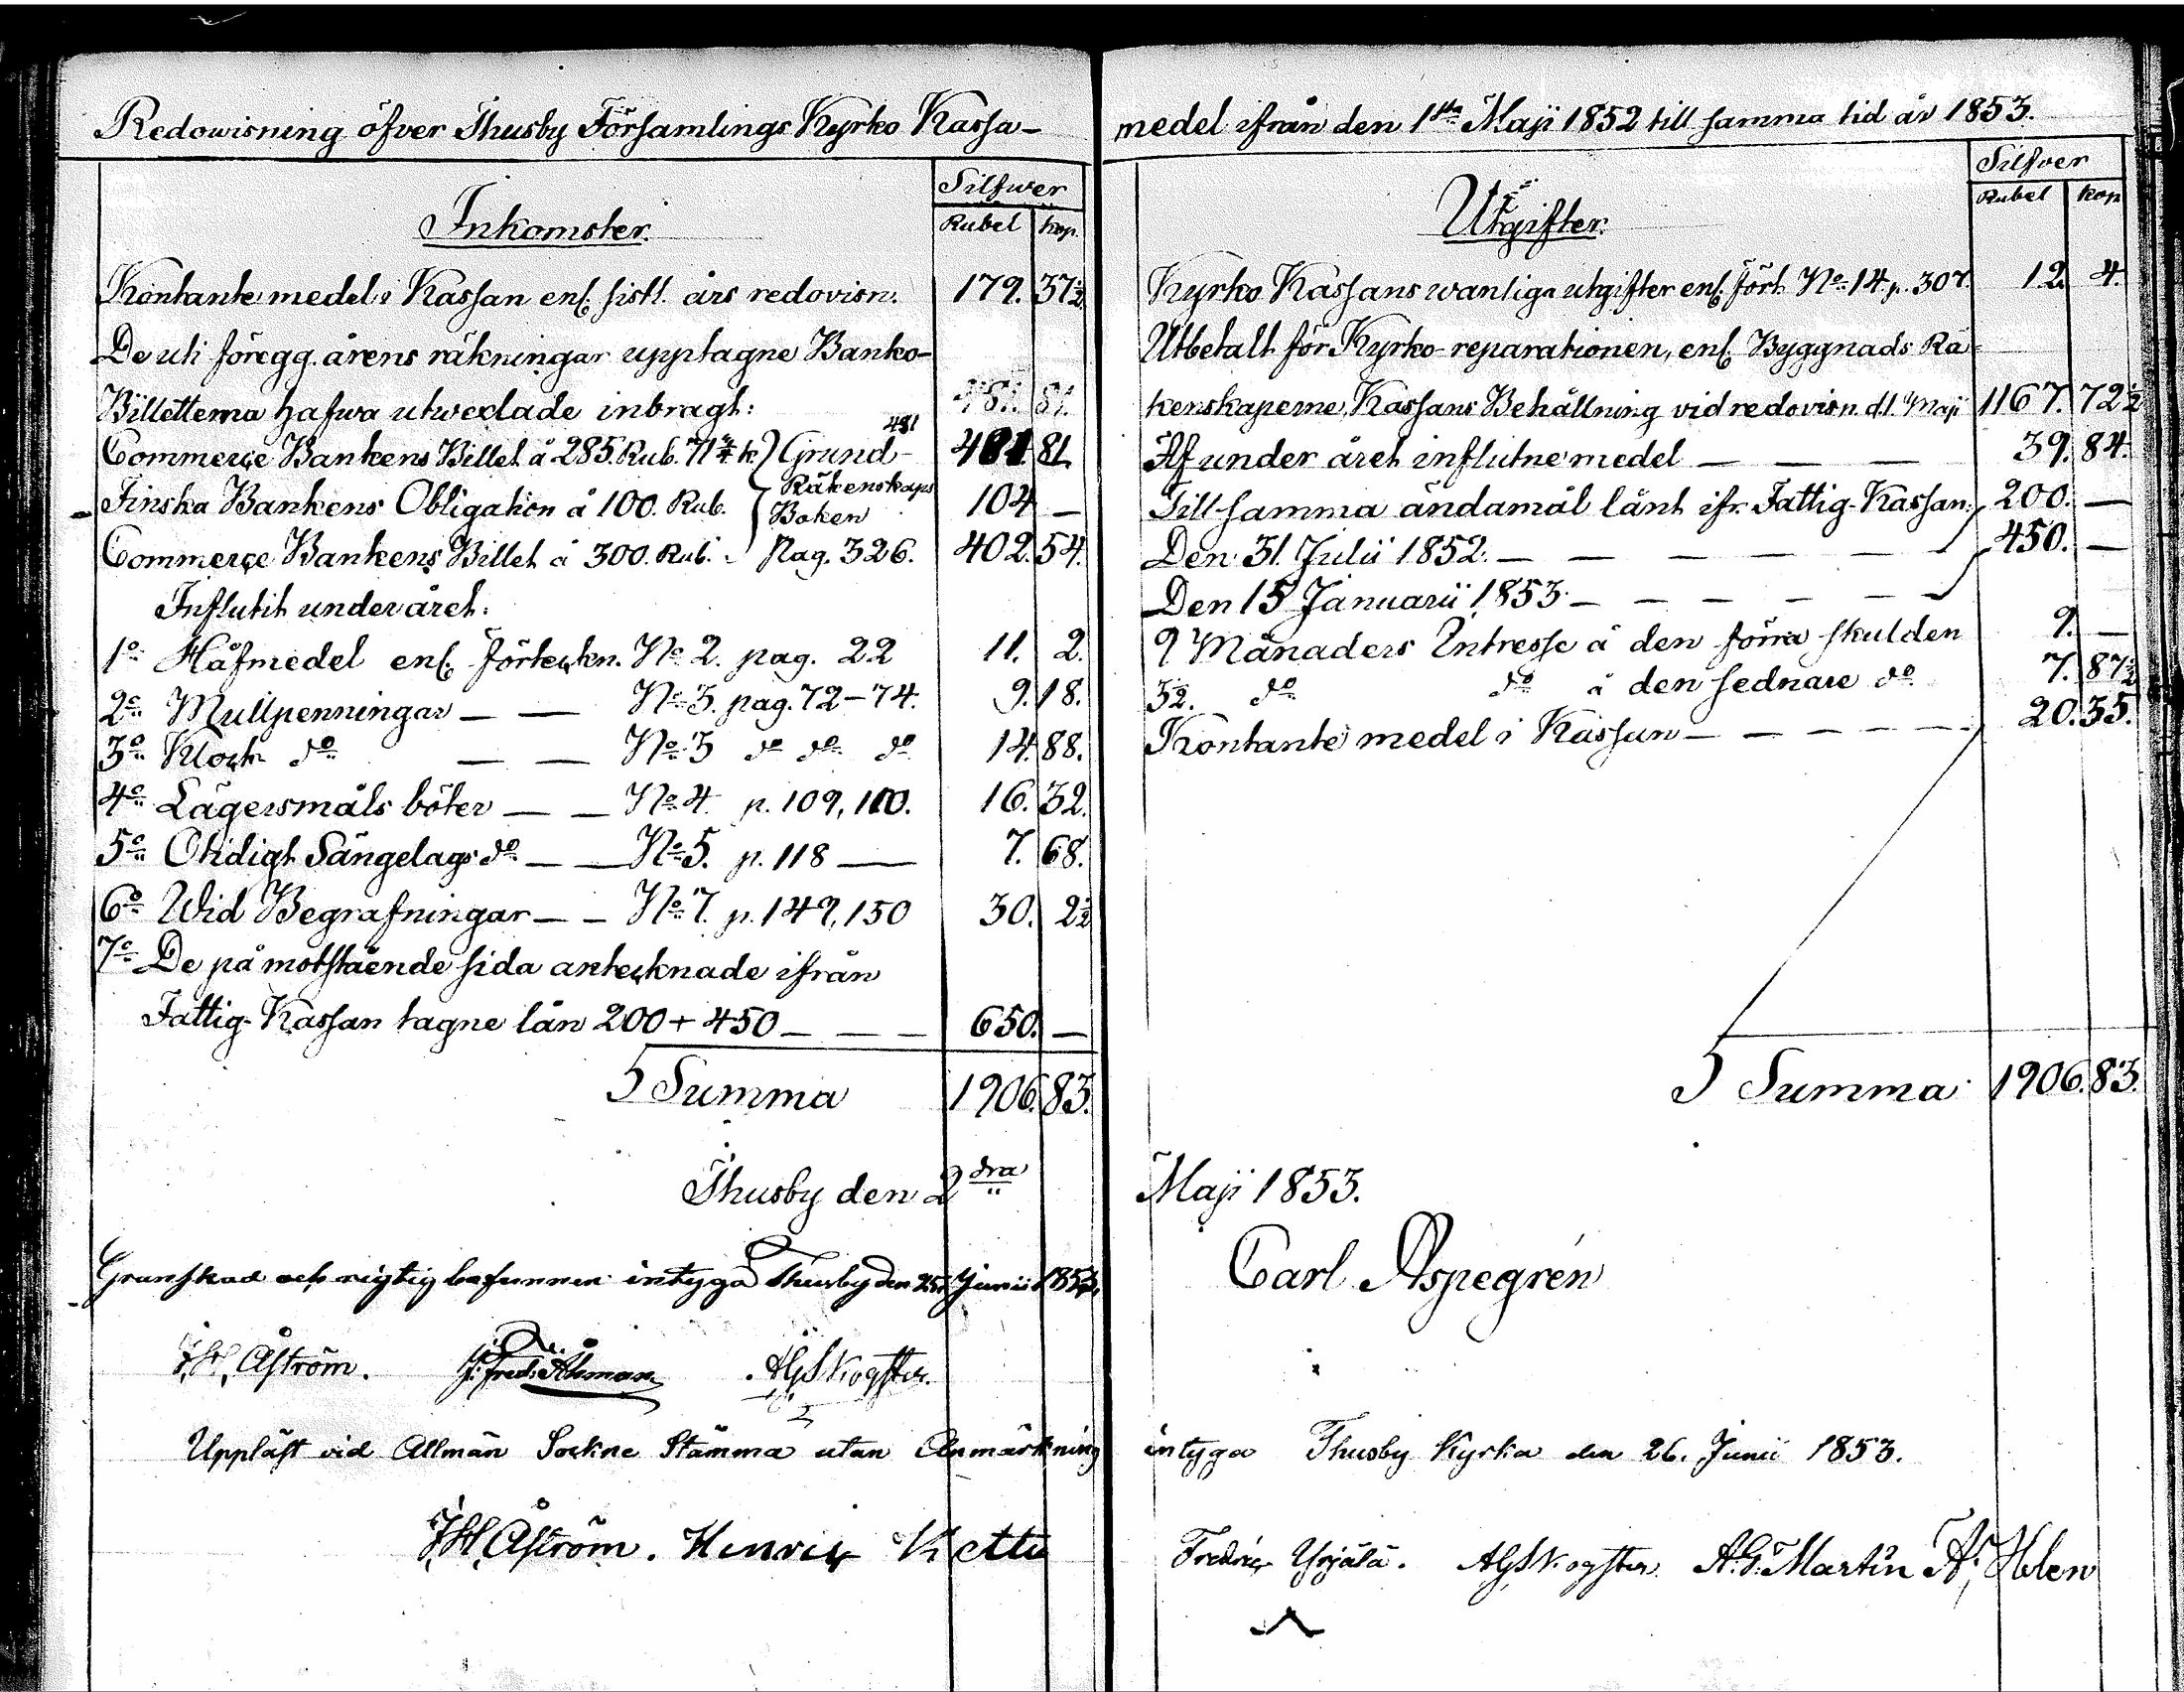 Redowisning öfver Thusby Församlings Kyrko Kassa-
Silfwer
Inkomster.
Rubel kop.
Kontante medel i Kassan enl. sistl. års redovisn. 179. 37½.
De uti föregg. årens räkningar upptagne Banko-
Billetterna hafwa utwexlade inbragt: 481. 81.
481
Commerce Bankens Billet å 285. Rub. 71 3/7 k. Grund- 481 81.
Finska Bankens Obligation å 100. Rub. Räkenskaps Boken 104 —
Commerce Bankens Billet å 300. Rub. Pag. 326. 402. 54.
Influtit under året:
1o Håfmedel enl. förteckn. No 2. pag. 22 11. 2.
2o Mullpenningar — — No 3. pag. 72-74. 9. 18.
3o Klock do — — No 3 do do do 14. 88.
4o Lägersmåls böter — — No 4. p. 109, 110. 16. 32.
5o Otidigt Sängelags do — — No 5. p. 118 — 7. 68.
6o Wid Begrafningar — — No 7. p. 149, 150 30. 2½
7o De på motstående sida antecknade ifrån
Fattig-Kassan tagne lån 200 + 450 — — — 650. —
Summa 1906. 83.
Thusby den 2dra
Granskad och rigtig befunnen intyga Thusby den 25 Junii 1853.
J.H. Åström. J. Fred. Åhman AGSkogster.
Uppläst vid Allmän Sockne Stämma utan Anmärkning
J.H. Åström. Henric Kettu
medel ifrån den 1sta Maji 1852 till samma tid år 1853.
Silfver
Utgifter:
Rubel kop
Kyrko Kassans wanliga utgifter enl. fört. No 14. p. 307. 12. 4.
Utbetalt för Kyrko-reparationen, enl. Byggnads Rä-
kenskaperne, Kassans Behållning vid redovisn. d. 1. Maji 1167. 72½
Af under året influtne medel — — — 39. 84.
Till samma ändamål lånt ifr. Fattig-Kassan. 200. —
Den 31. Julii 1852. — — — — — 450. —
Den 15 Januarii 1853 — — — — —
9 Månaders Intresse å den förra skulden 9. —
3½. do do å den sednare do 7. 87½
Kontante medel i Kassan — — — — — 20. 35.
Summa 1906. 83.
Maji 1853.
Carl Aspegrén
intyga Thusby Kyrka den 26. Junii 1853.
Fredric Yrjälä. AGSkogster. A.G. Martin A. Helen